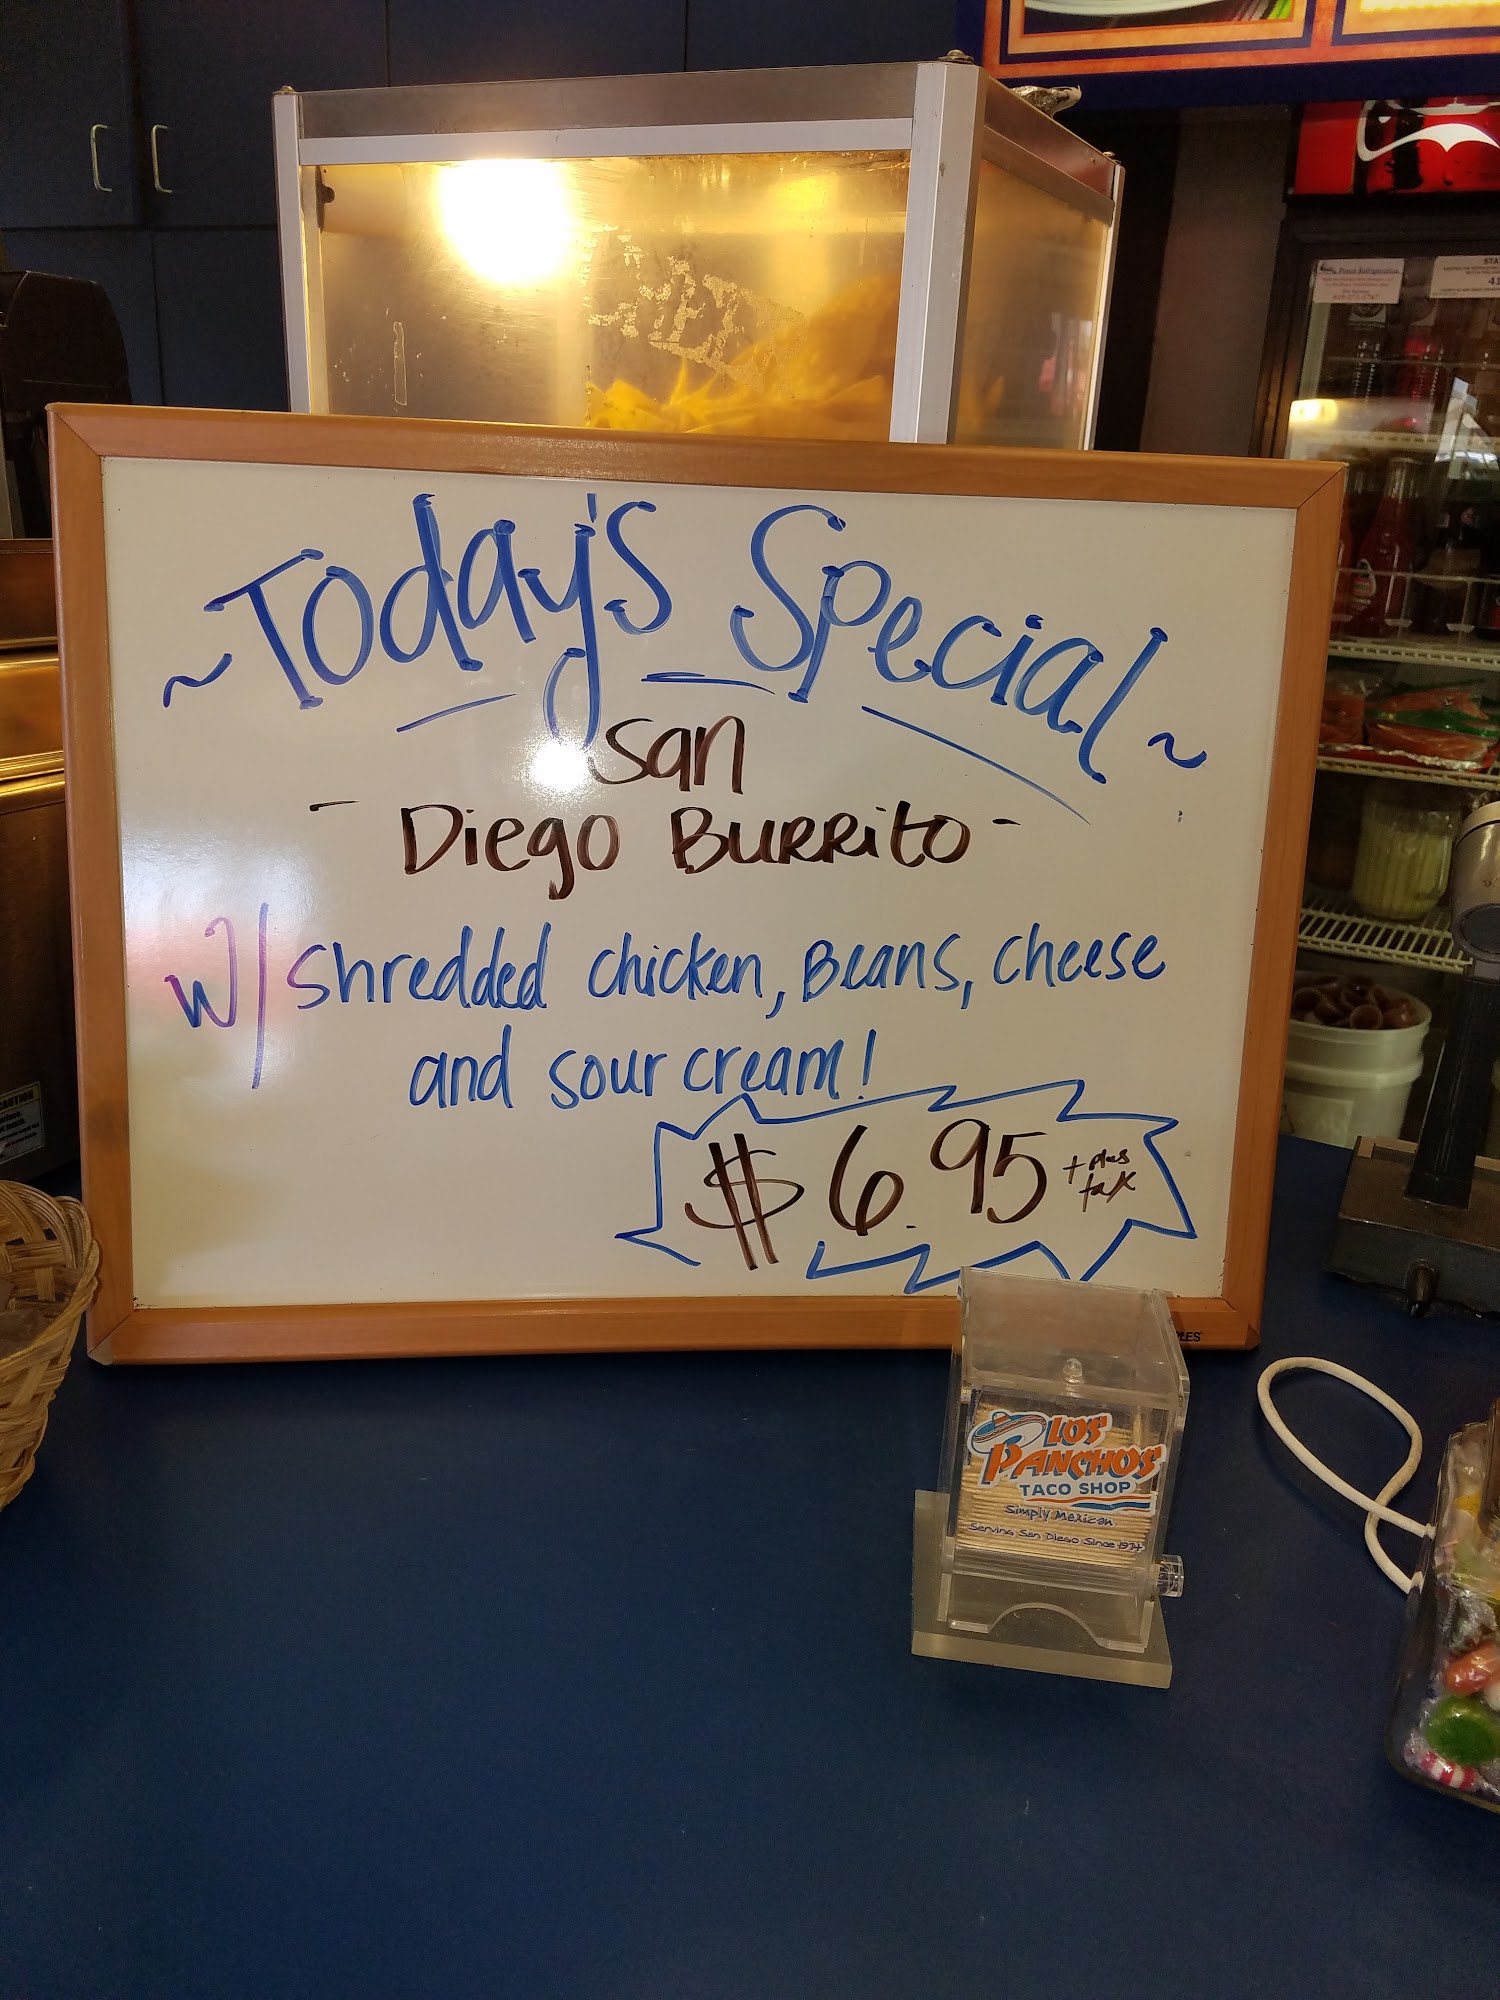 ~Today's Special~
San
- Diego Burrito -
w/ shredded chicken, Beans, cheese
and sour cream!
$6.95 + plus
tax
LOS
PANCHOS
TACO SHOP
Simply Mexican
Serving San Diego Since 1974
CAUTION